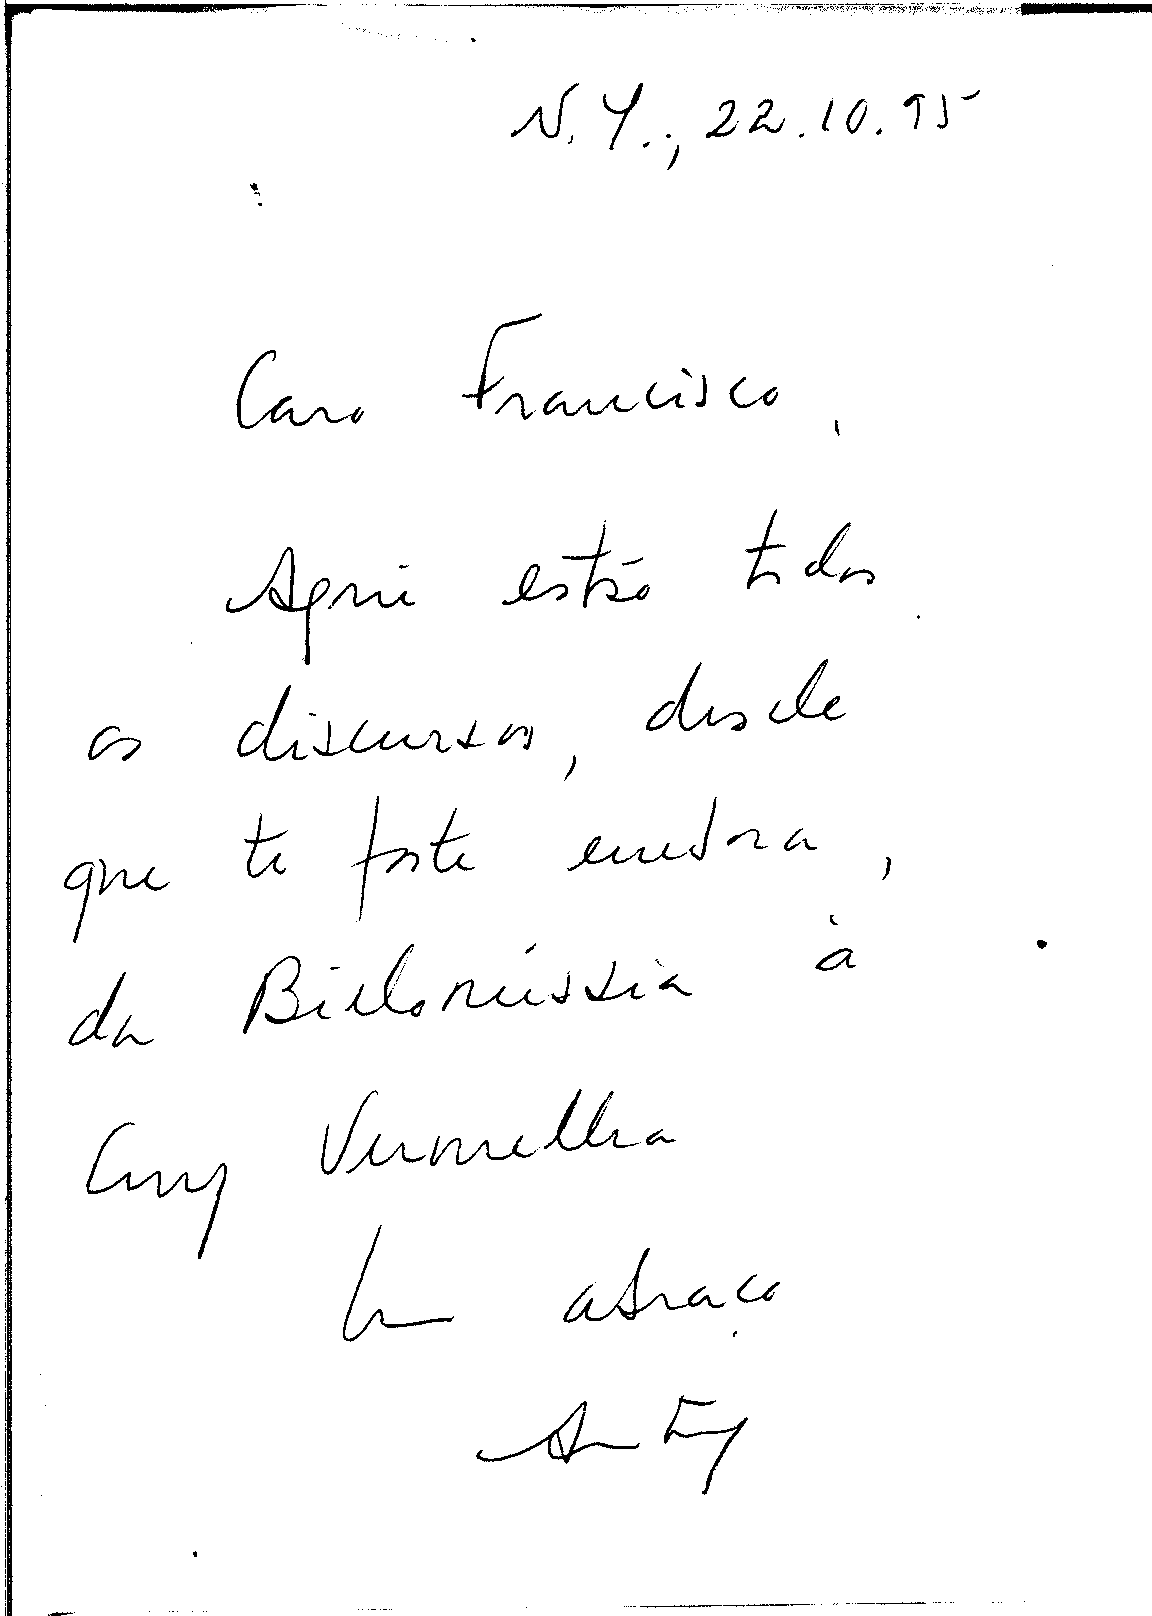 N.Y., 22.10.95
Caro Francisco,
Aqui estão todos
os discursos, desde
que te foste embora,
da Bielorússia à
Cruz Vermelha
Um abraço